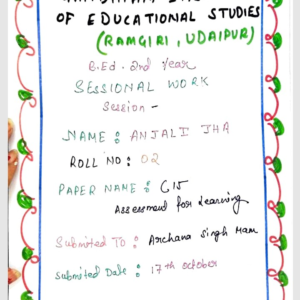 OF EDUCATIONAL STUDIES
(RAMGIRI, UDAIPUR)
B.Ed. 2nd Year
SESSIONAL WORK
Session -
NAME : ANJALI JHA
ROLL NO : 02
PAPER NAME : C15
Assessment for Learning
Submitted To : Archana Singh Mam
Submitted Date : 17th October